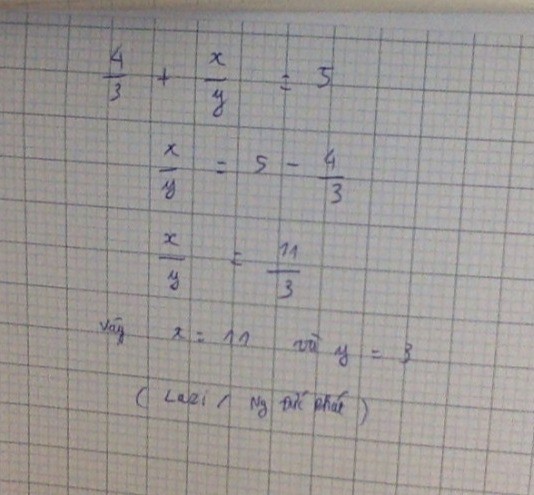 4/3 + x/y = 5
x/y = 5 - 4/3
x/y = 11/3
Vậy x = 11 và y = 3
( Lazi / Ng Đức Phát )